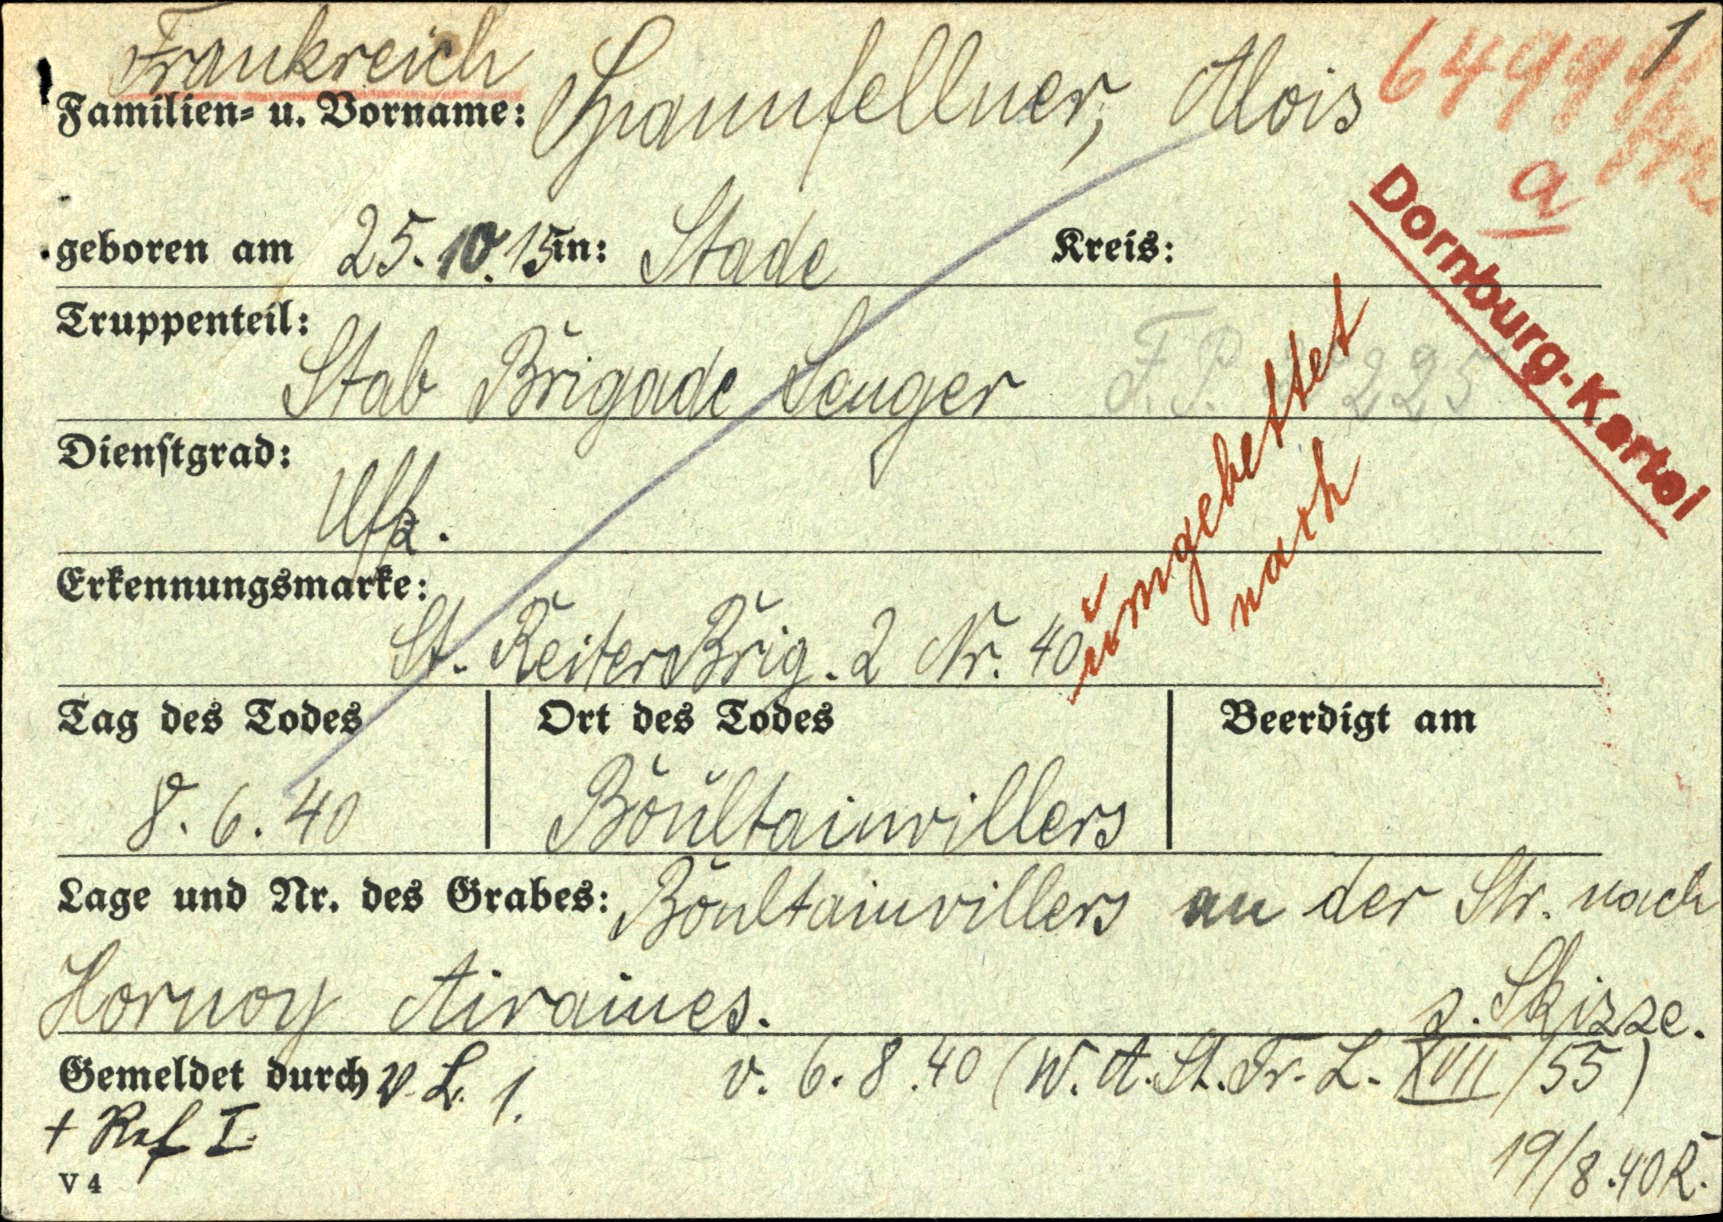 Frankreich 1
Familien- u. Vorname: Spannfellner, Alois 6499
a
Dornburg-Kartei
geboren am 25.10.15 in: Stade Kreis:
Truppenteil:
Stab Brigade Senger F.P. 225
Dienstgrad:
Uffz.
umgebettet
nach
Erkennungsmarke:
St. Reiter Brig. 2 Nr. 40
Tag des Todes Ort des Todes Beerdigt am
8.6.40 Boultainvillers
Lage und Nr. des Grabes: Boultainvillers an der Str. nach
Hornoy Airaines. s. Skizze.
Gemeldet durch V. L. 1. v. 6.8.40 (W.A.St. Fr. L. XVIII/55)
+ Ref I.
19/8.40 R.
V 4